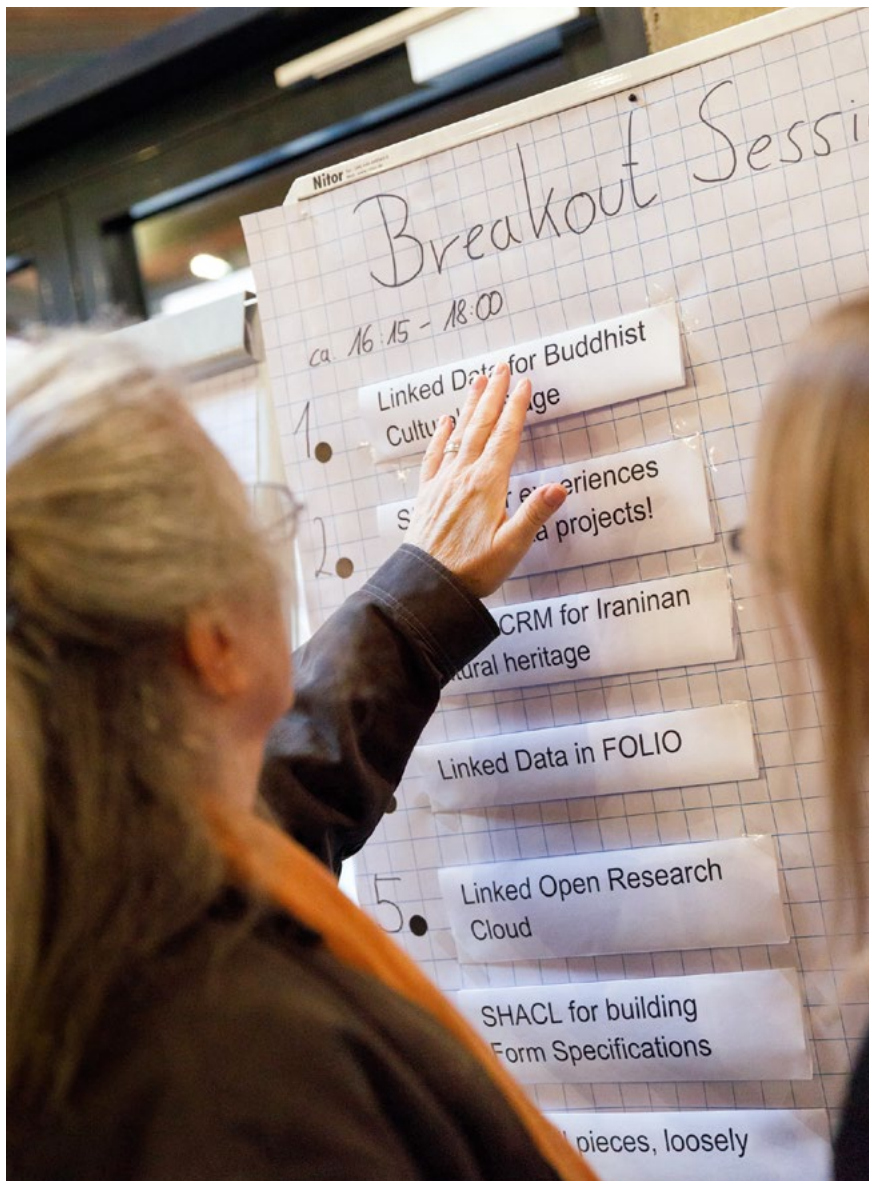 Nitor
Breakout Sessi
ca. 16:15 - 18:00
1.
Linked Data for Buddhist
Cultural
2.
experiences
projects!
CRM for Iraninan
heritage
Linked Data in FOLIO
5.
Linked Open Research
Cloud
SHACL for building
Form Specifications
pieces, loosely